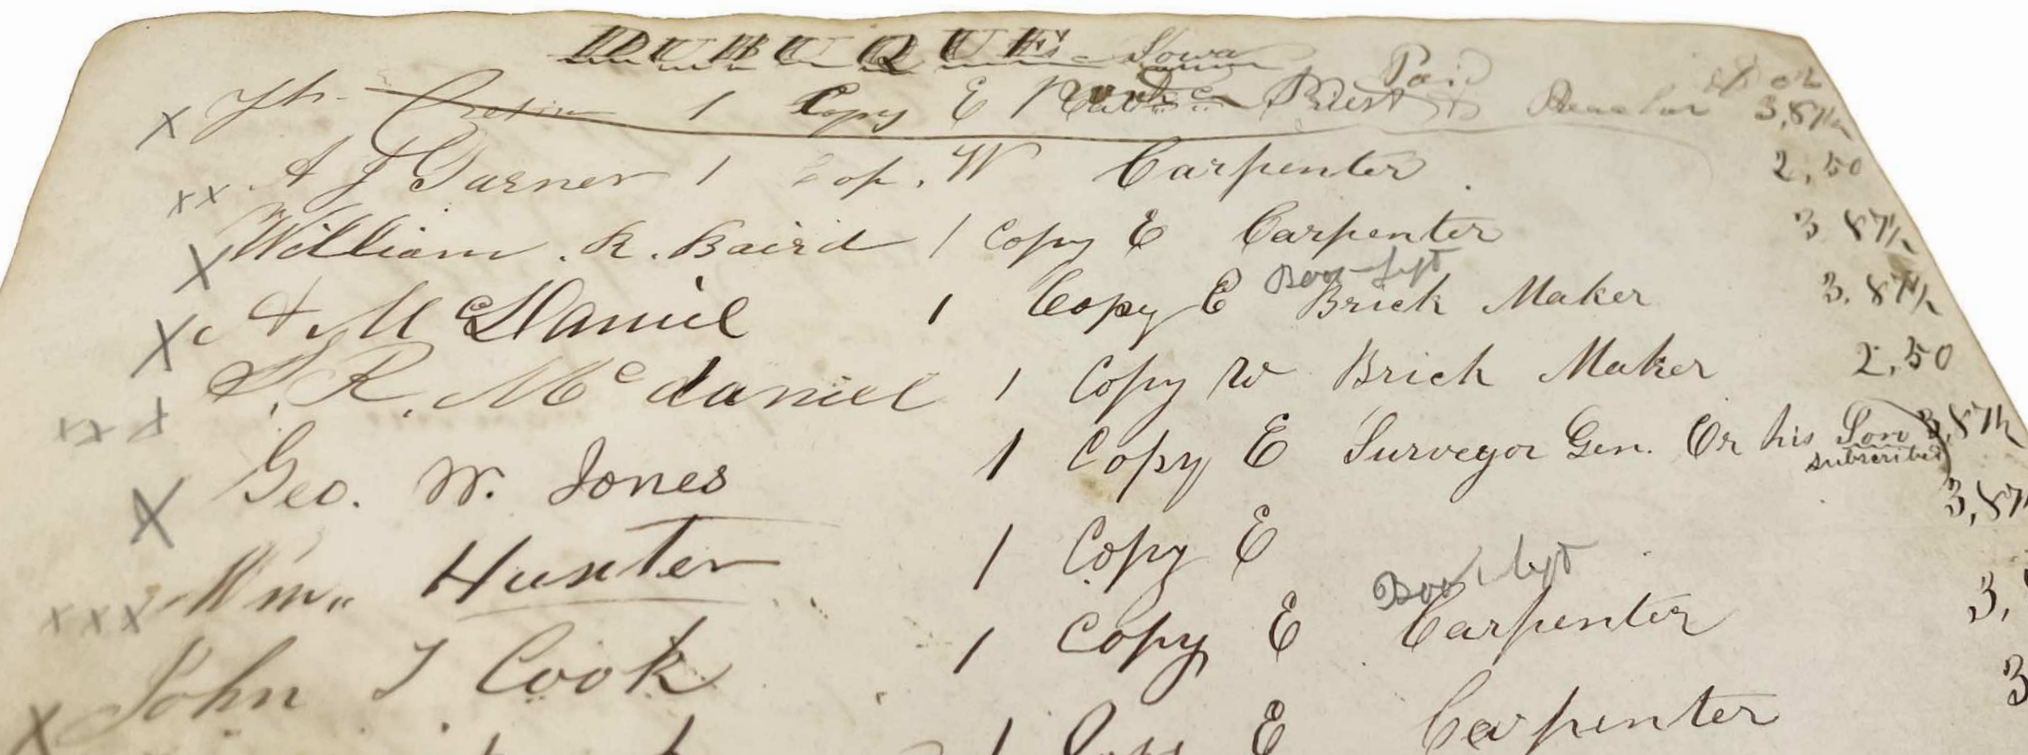 DUBUQUE - Iowa
Paid
x Jh. Cretin 1 Copy E Priest 3,87½
xx A J Garner 1 Cop. W Carpenter 2,50
X William . R. Baird 1 Copy E Carpenter 3 87½
Book left
X A McDaniel 1 Copy E Brick Maker 3.87½
xx x S. R. Mcdaniel 1 Copy W Brick Maker 2,50
X Geo. W. Jones 1 Copy E Surveyor Gen. Or his Son subscribed 3,87½
xxx Wm,, Hunter 1 Copy E 3,87
Book left
X John T Cook 1 Copy E Carpenter 3,
1 Copy E Carpenter 3